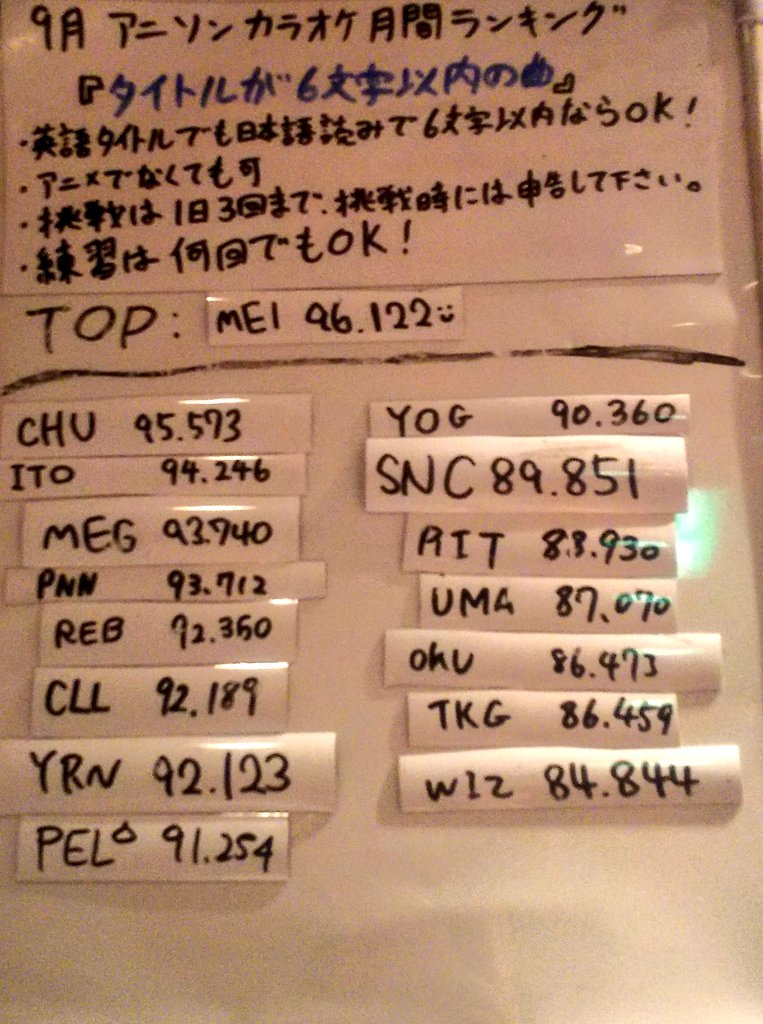 9月 アニソンカラオケ月間ランキング
『タイトルが6文字以内の曲』
・英語タイトルでも日本語読みで6文字以内ならOK!
・アニメでなくても可
・挑戦は1日3回まで、挑戦時には申告して下さい。
・練習は何回でもOK!
TOP: MEI 96.122
CHU 95.573
ITO 94.246
MEG 93.940
PNN 93.712
REB 92.350
CLL 92.189
YRN 92.123
PEL△ 91.254
YOG 90.360
SNC 89.851
AIT 88.930
UMA 87.070
OKU 86.473
TKG 86.459
WIZ 84.844